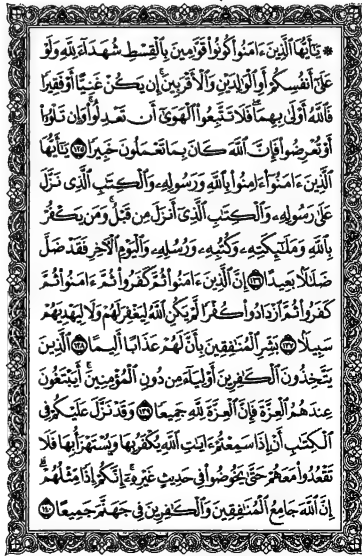 ۞ يَٰٓأَيُّهَا ٱلَّذِينَ ءَامَنُوا۟ كُونُوا۟ قَوَّٰمِينَ بِٱلْقِسْطِ شُهَدَآءَ لِلَّهِ وَلَوْ
عَلَىٰٓ أَنفُسِكُمْ أَوِ ٱلْوَٰلِدَيْنِ وَٱلْأَقْرَبِينَ ۚ إِن يَكُنْ غَنِيًّا أَوْ فَقِيرًا
فَٱللَّهُ أَوْلَىٰ بِهِمَا ۖ فَلَا تَتَّبِعُوا۟ ٱلْهَوَىٰٓ أَن تَعْدِلُوا۟ ۚ وَإِن تَلْوُۥٓا۟
أَوْ تُعْرِضُوا۟ فَإِنَّ ٱللَّهَ كَانَ بِمَا تَعْمَلُونَ خَبِيرًا ١٣٥ يَٰٓأَيُّهَا
ٱلَّذِينَ ءَامَنُوٓا۟ ءَامِنُوا۟ بِٱللَّهِ وَرَسُولِهِۦ وَٱلْكِتَٰبِ ٱلَّذِى نَزَّلَ
عَلَىٰ رَسُولِهِۦ وَٱلْكِتَٰبِ ٱلَّذِىٓ أَنزَلَ مِن قَبْلُ ۚ وَمَن يَكْفُرْ
بِٱللَّهِ وَمَلَٰٓئِكَتِهِۦ وَكُتُبِهِۦ وَرُسُلِهِۦ وَٱلْيَوْمِ ٱلْءَاخِرِ فَقَدْ ضَلَّ
ضَلَٰلًۢا بَعِيدًا ١٣٦ إِنَّ ٱلَّذِينَ ءَامَنُوا۟ ثُمَّ كَفَرُوا۟ ثُمَّ ءَامَنُوا۟ ثُمَّ
كَفَرُوا۟ ثُمَّ ٱزْدَادُوا۟ كُفْرًا لَّمْ يَكُنِ ٱللَّهُ لِيَغْفِرَ لَهُمْ وَلَا لِيَهْدِيَهُمْ
سَبِيلًۢا ١٣٧ بَشِّرِ ٱلْمُنَٰفِقِينَ بِأَنَّ لَهُمْ عَذَابًا أَلِيمًا ١٣٨ ٱلَّذِينَ
يَتَّخِذُونَ ٱلْكَٰفِرِينَ أَوْلِيَآءَ مِن دُونِ ٱلْمُؤْمِنِينَ ۚ أَيَبْتَغُونَ
عِندَهُمُ ٱلْعِزَّةَ فَإِنَّ ٱلْعِزَّةَ لِلَّهِ جَمِيعًا ١٣٩ وَقَدْ نَزَّلَ عَلَيْكُمْ فِى
ٱلْكِتَٰبِ أَنْ إِذَا سَمِعْتُمْ ءَايَٰتِ ٱللَّهِ يُكْفَرُ بِهَا وَيُسْتَهْزَأُ بِهَا فَلَا
تَقْعُدُوا۟ مَعَهُمْ حَتَّىٰ يَخُوضُوا۟ فِى حَدِيثٍ غَيْرِهِۦٓ ۚ إِنَّكُمْ إِذًا مِّثْلُهُمْ ۗ
إِنَّ ٱللَّهَ جَامِعُ ٱلْمُنَٰفِقِينَ وَٱلْكَٰفِرِينَ فِى جَهَنَّمَ جَمِيعًا ١٤٠